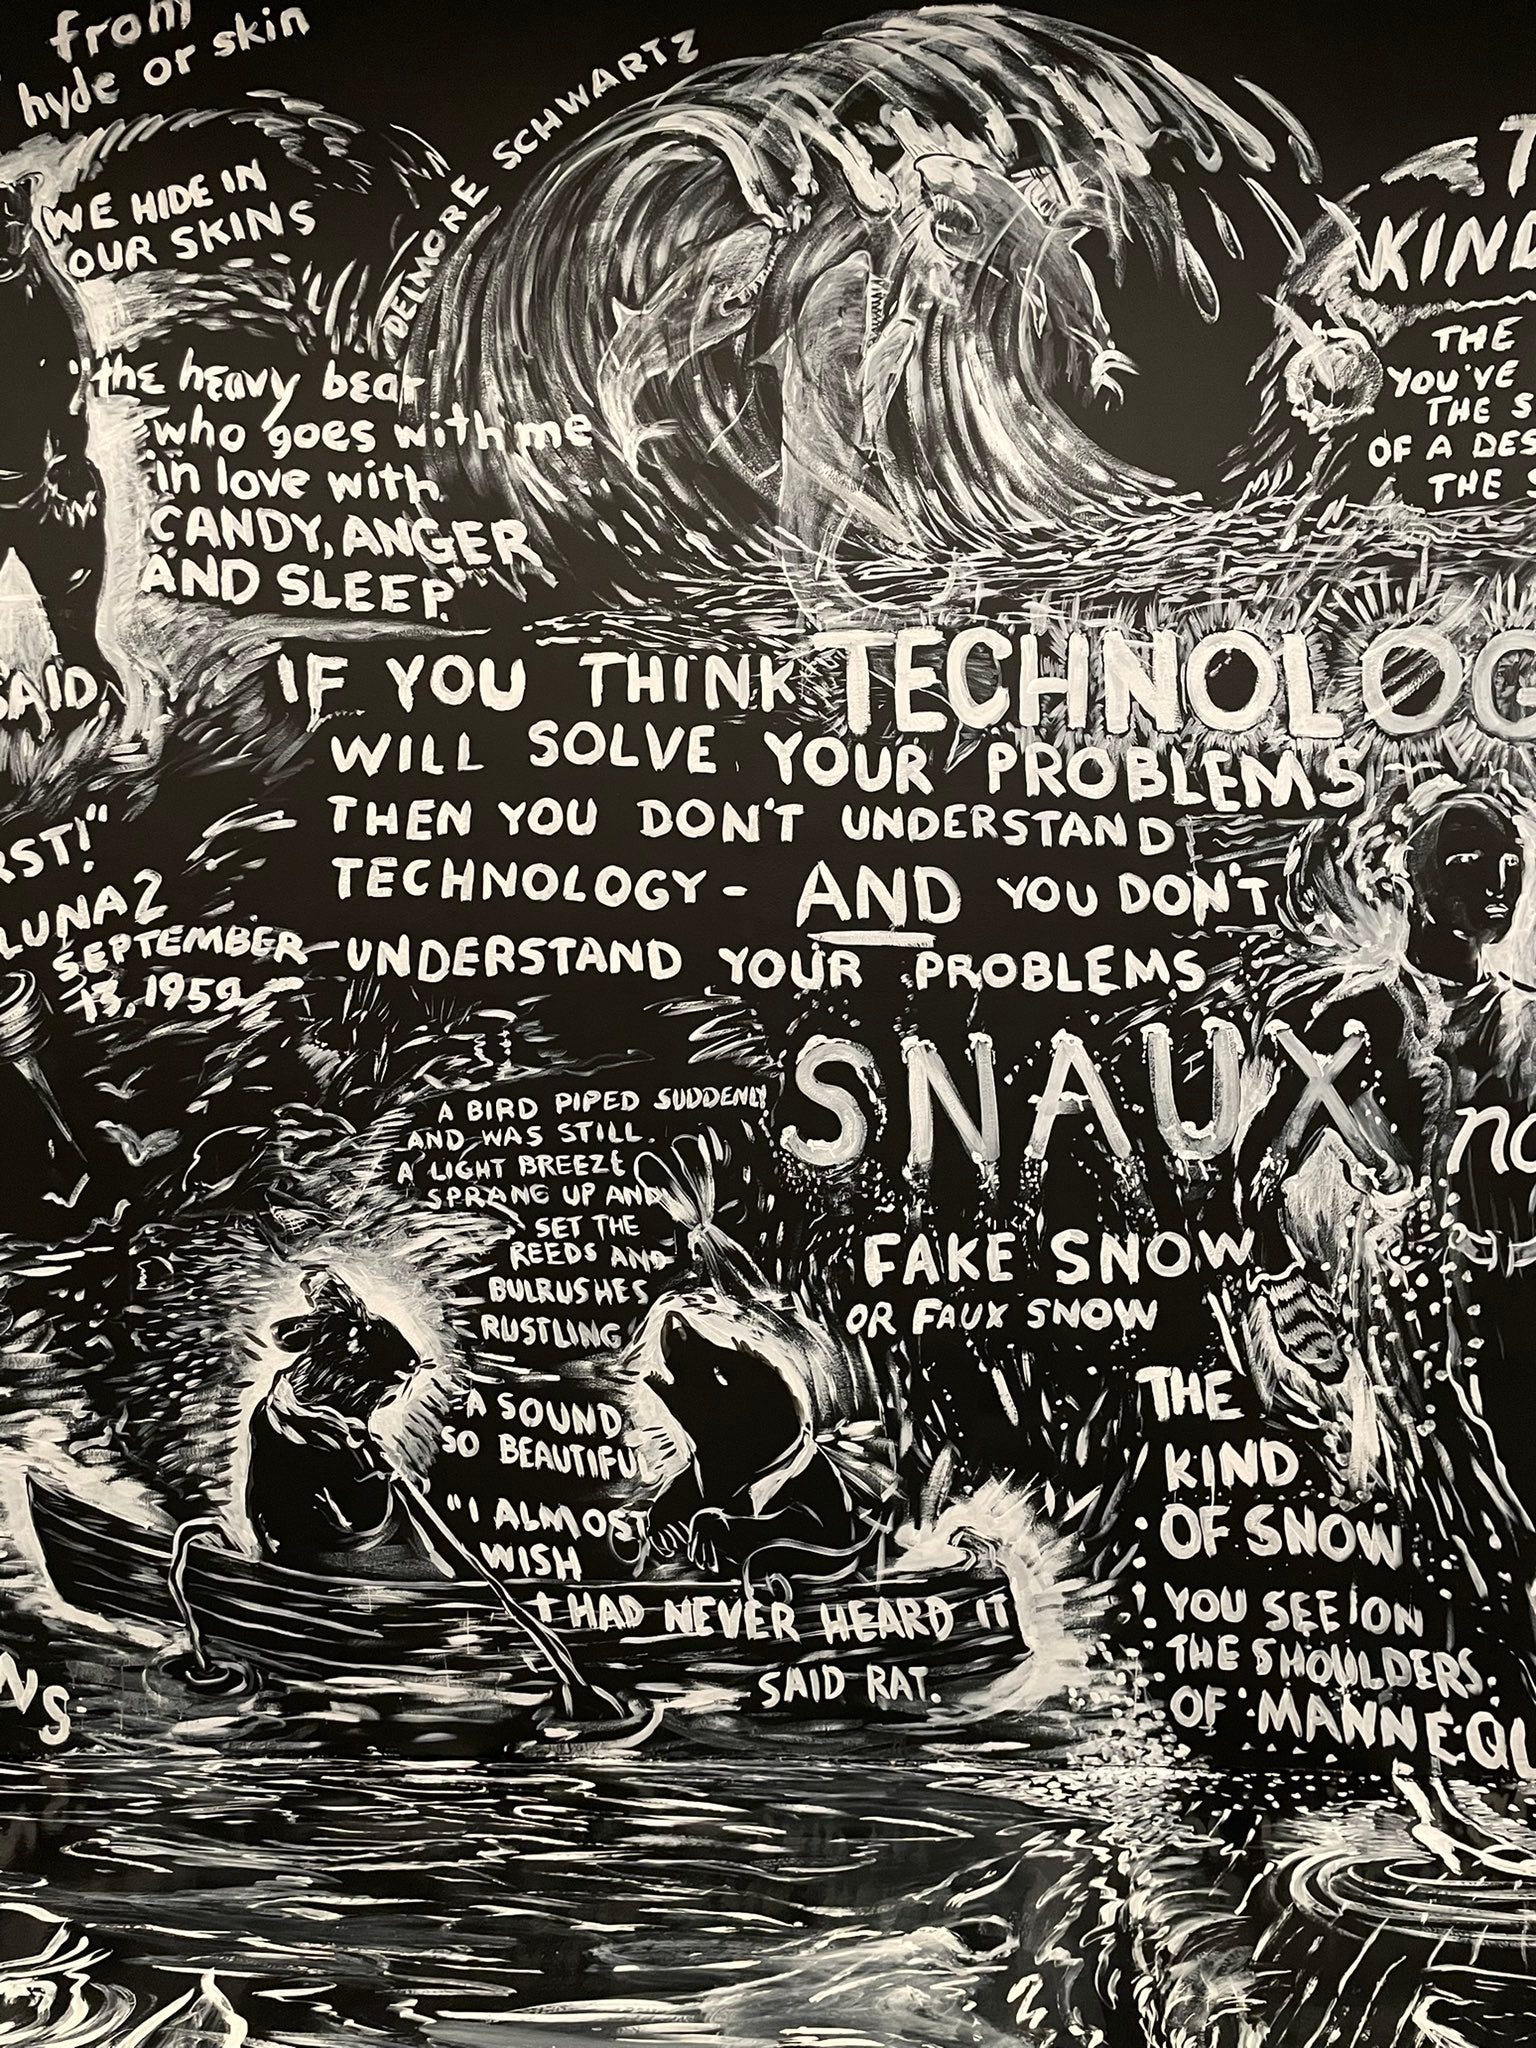 from
hyde or skin
WE HIDE IN
OUR SKINS
DELMORE SCHWARTZ
"the heavy bear
who goes with me
in love with
CANDY, ANGER
AND SLEEP."
KIND
THE
YOU'VE
THE S
OF A DES
THE S
SAID,
IF YOU THINK TECHNOLOG
WILL SOLVE YOUR PROBLEMS
THEN YOU DON'T UNDERSTAND
TECHNOLOGY - AND YOU DON'T
UNDERSTAND YOUR PROBLEMS.
RST!"
LUNA 2
SEPTEMBER
13, 1959
SNAUX
FAKE SNOW
OR FAUX SNOW
THE
KIND
OF SNOW
YOU SEE ON
THE SHOULDERS
OF MANNEQU
no
A BIRD PIPED SUDDENLY
AND WAS STILL.
A LIGHT BREEZE
SPRANG UP AND
SET THE
REEDS AND
BULRUSHES
RUSTLING
A SOUND
SO BEAUTIFUL
"I ALMOST
WISH
I HAD NEVER HEARD IT
SAID RAT.
NS